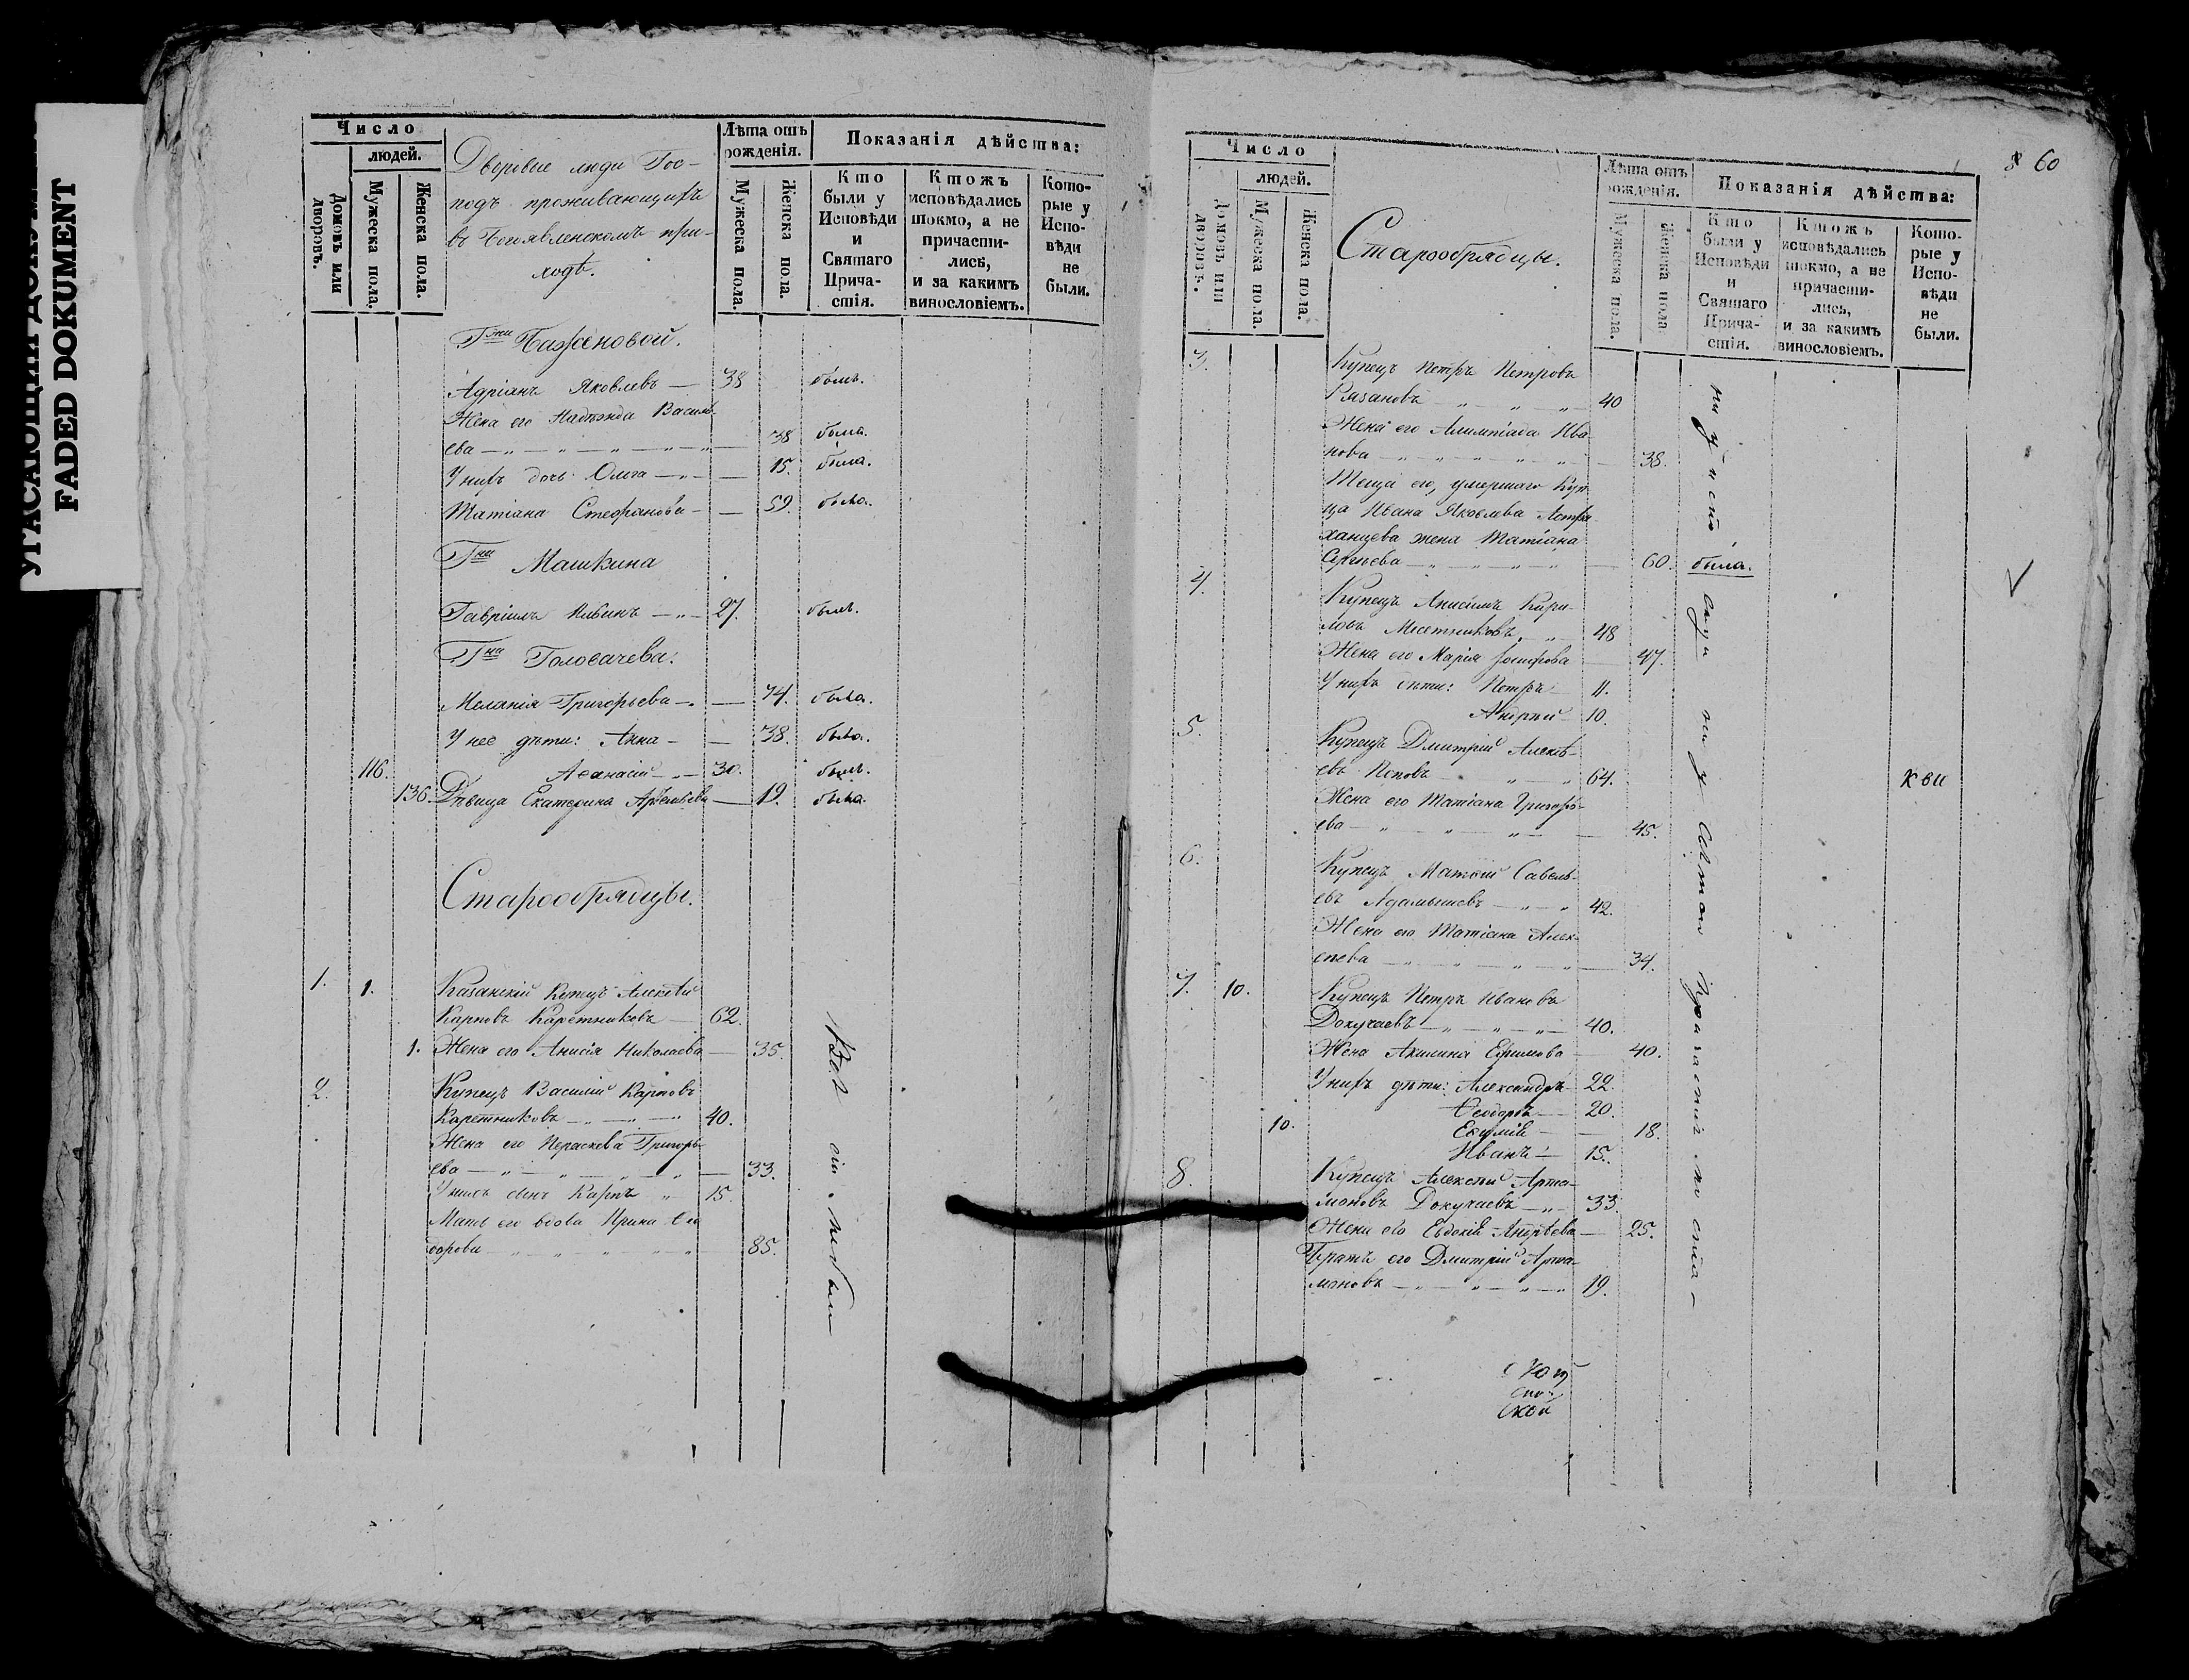 УГАСАЮЩИЙ ДОКУМЕНТ
FADED DOKUMENT
Число
людей.
Домовъ или дворовъ.
Мужеска пола.
Женска пола.
Дворовые люди Гос-
подъ проживающихъ
въ Богоявленскомъ при-
ходѣ.
Лѣта отъ рожденія.
Мужеска пола.
Женска пола.
Показанія дѣйства:
Кто были у Исповѣди и Святаго Прича-стія.
Ктожъ исповѣдались токмо, а не причасти-лись, и за какимъ винословіемъ.
Кото-рые у Испо-вѣди не были.
Гжи Баженовой.
Адріанъ Яковлевъ — 38 былъ.
Жена его Надежда Василь-
ева — „ — „ — 38 была.
У нихъ дочь Ольга — „ — 15. была.
Татіана Стефанова — 59. была.
Гна Машкина
Гавріилъ Ильинъ — „ — 27. былъ.
Гна Головачева.
Меланія Григорьева — 74. была.
У нее дѣти: Анна — 38. была.
116. Аѳанасій — „ — 30. былъ.
136 Дѣвица Екатерина Артемьева — 19. была.
Старообрядцы.
1. 1. Казанскій Купецъ Алексѣй
Карповъ Каретниковъ — 62.
1. Жена его Анисія Николаева — 35.
2. Купецъ Василій Карповъ
Каретниковъ — „ — „ 40.
Жена его Параскева Григорь-
ева — „ — „ — „ — 33.
У нихъ сынъ Карпъ „ 15.
Мать его вдова Ирина Ѳео
дорова — „ — „ — „ 85.
Всѣ
не были
60
Число
людей.
Домовъ или дворовъ.
Мужеска пола.
Женска пола.
Старообрядцы.
Лѣта отъ рожденія.
Мужеска пола.
Женска пола
Показанія дѣйства:
Кто были у Исповѣди и Святаго Прича-стія.
Ктожъ исповѣдались токмо, а не причасти-лись, и за какимъ винословіемъ.
Кото-рые у Испо-вѣди не были.
3. Купецъ Петръ Петровъ
Рязановъ — „ „ — „ 40
Жена его Алимпіада Ива
нова — „ — „ — „ — 38.
Теща его, умершаго Куп
ца Ивана Яковлева Астра
ханцева жена Татіана
Сергѣева — „ — „ — „ — 60. была.
4. Купецъ Анисимъ Кири-
ловъ Месетниковъ „ — „ 48
Жена его Марія — 47.
У нихъ дѣти: Петръ — 11.
Андрей — 10.
5. Купецъ Дмитрій Алексѣ-
евъ Поповъ — „ — „ 64.
Жена его Татіана Григорь-
ева — „ — „ — 45.
6. Купецъ Матѳій Савель-
евъ — „ — „ 42.
Жена его Татіана Алек-
сѣева — „ — „ — „ — 34.
7. 10. Купецъ Петръ Ивановъ
Докучаевъ — „ — „ — 40.
Жена Акилина Ефимова — 40.
У нихъ дѣти: Александръ — 22.
Ѳеодоръ — 20.
10. — 18.
Иванъ — 15.
8. Купецъ Алексѣй Арта-
моновъ Докучаевъ — „ — 33.
Жена его Евдокія Андреева — 25.
Братъ его Дмитрій Арта-
моновъ — „ — „ — „ 19.